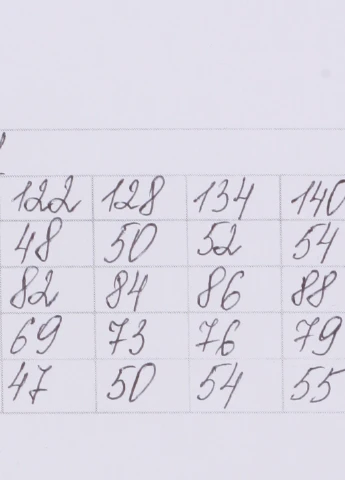 122 128 134 140
48 50 52 54
82 84 86 88
69 73 76 79
47 50 54 55